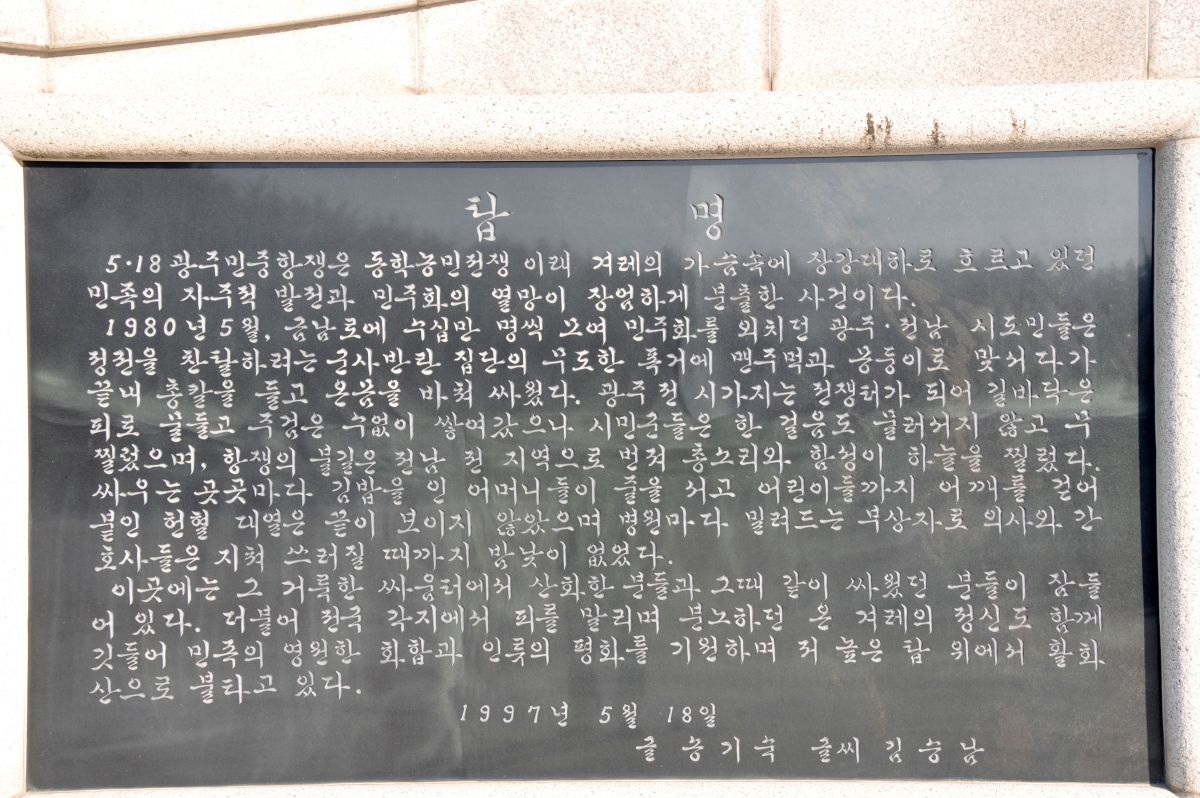 탑 명
5·18 광주민중항쟁은 동학농민전쟁 이래 겨레의 가슴속에 장강대하로 흐르고 있던
민족의 자주적 발전과 민주화의 열망이 장엄하게 분출한 사건이다.
1980년 5월, 금남로에 수십만 명씩 모여 민주화를 외치던 광주·전남 시도민들은
정권을 찬탈하려는 군사반란 집단의 무도한 폭거에 맨주먹과 몽둥이로 맞서다가
끝내 총칼을 들고 온몸을 바쳐 싸웠다. 광주전 시가지는 전쟁터가 되어 길바닥은
피로 물들고 주검은 수없이 쌓여갔으나 시민군들은 한 걸음도 물러서지 않고 무
찔렀으며, 항쟁의 불길은 전남 전 지역으로 번져 총소리와 함성이 하늘을 찔렀다.
싸우는 곳곳마다 김밥을 인 어머니들이 줄을 서고 어린이들까지 어깨를 걸어
붙인 헌혈 대열은 끝이 보이지 않았으며 병원마다 밀려드는 부상자로 의사와 간
호사들은 지쳐 쓰러질 때까지 밤낮이 없었다.
이곳에는 그 거룩한 싸움터에서 산화한 분들과 그때 같이 싸웠던 분들이 잠들
어 있다. 더불어 전국 각지에서 피를 말리며 분노하던 온 겨레의 정신도 함께
깃들어 민족의 영원한 화합과 인류의 평화를 기원하며 저 높은 탑 위에서 활화
산으로 불타고 있다.
1997년 5월 18일
글 송기숙 글씨 김승남